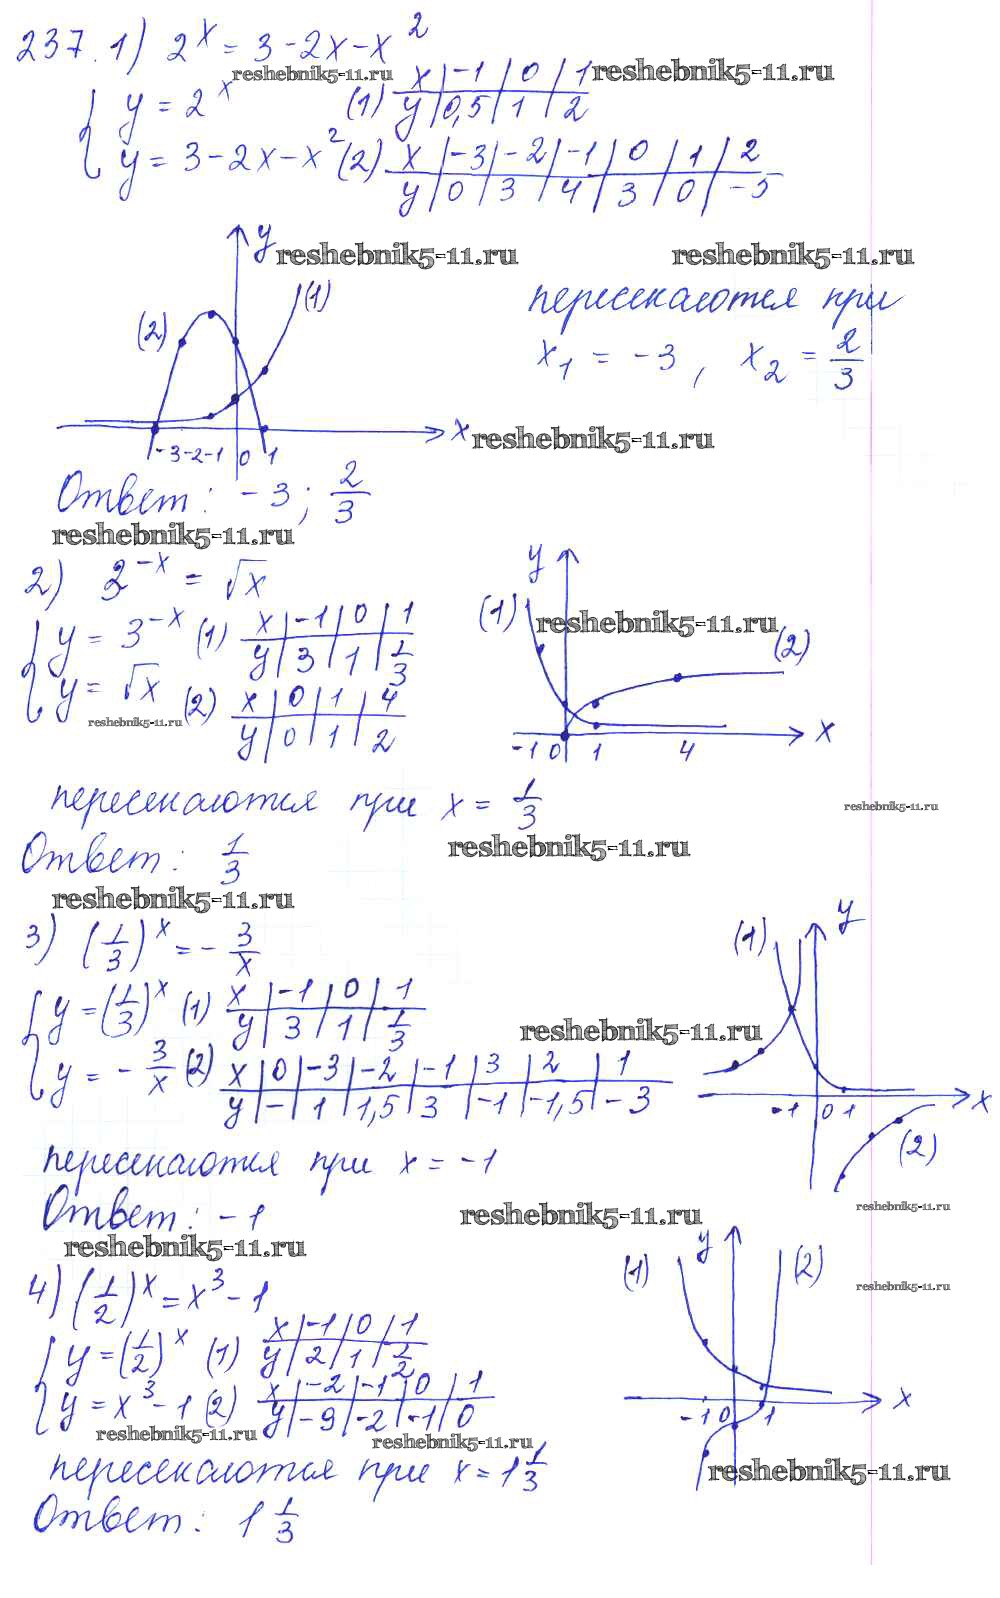 237. 1) 2^x = 3 - 2x - x^2
reshebnik5-11.ru reshebnik5-11.ru
{ y = 2^x (1) x | -1 | 0 | 1
y | 0,5 | 1 | 2
y = 3 - 2x - x^2 (2) x | -3 | -2 | -1 | 0 | 1 | 2
y | 0 | 3 | 4 | 3 | 0 | -5
y
reshebnik5-11.ru reshebnik5-11.ru
(2) (1)
пересекаются при
x₁ = -3, x₂ = 2/3
x reshebnik5-11.ru
-3 -2 -1 0 1
Ответ: -3; 2/3
reshebnik5-11.ru
2) 3^-x = √x
{ y = 3^-x (1) x | -1 | 0 | 1
y | 3 | 1 | 1/3
y = √x (2) x | 0 | 1 | 4
y | 0 | 1 | 2
reshebnik5-11.ru
y
(1) reshebnik5-11.ru
(2)
-1 0 1 4 x
пересекаются при x = 1/3
reshebnik5-11.ru
Ответ: 1/3
reshebnik5-11.ru
reshebnik5-11.ru
3) (1/3)^x = - 3/x
{ y = (1/3)^x (1) x | -1 | 0 | 1
y | 3 | 1 | 1/3
y = - 3/x (2) x | 0 | -3 | -2 | -1 | 3 | 2 | 1
y | - | 1 | 1,5 | 3 | -1 | -1,5 | -3
reshebnik5-11.ru
(1) y
-1 0 1 x
(2)
пересекаются при x = -1
Ответ: -1
reshebnik5-11.ru reshebnik5-11.ru
reshebnik5-11.ru
4) (1/2)^x = x^3 - 1
{ y = (1/2)^x (1) x | -1 | 0 | 1
y | 2 | 1 | 1/2
y = x^3 - 1 (2) x | -2 | -1 | 0 | 1
y | -9 | -2 | -1 | 0
reshebnik5-11.ru reshebnik5-11.ru
y
(1) (2)
reshebnik5-11.ru
-1 0 1 x
reshebnik5-11.ru
пересекаются при x = 1 1/3
Ответ: 1 1/3